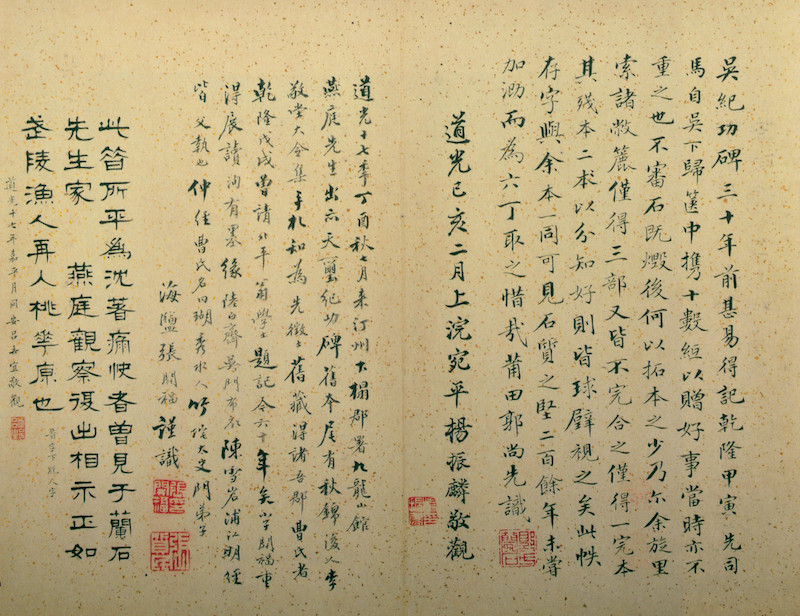 吳紀功碑三十年前甚易得記乾隆甲寅先司
馬自吳下歸篋中攜十數紙以贈好事當時亦不
重之也不審石既燬後何以拓本之少乃尒余旋里
索諸敝簏僅得三部又皆不完合之僅得一完本
其殘本二本以分知好則皆球璧視之矣此帙
存字與余本一同可見石質之堅二百餘年未嘗
加泐而為六丁取之惜哉莆田郭尚先識
道光己亥二月上浣宛平楊振麟敬觀
道光十七年丁酉秋七月來汀州下榻郡署九龍山館
燕庭先生出示天璽紀功碑舊本尾有秋錦後人李
敬堂大令集手札知為先徵士舊藏得諸吾郡曹氏者
乾隆戊戌曾請北平翁學士題記今六十年矣開福重
得展讀洵有墨緣陸白齋吳門布衣陳雪岩浦江明經
皆父執也仲經曹氏名田瑚秀水人竹垞太史門弟子
海鹽張開福謹識
此昔所平為沈著痛快者曾見于蘭石
先生家 燕庭觀察復出相示正如
武陵漁人再入桃華原也
昔字下脫人字
道光十七年嘉平月同安呂世宜敬觀